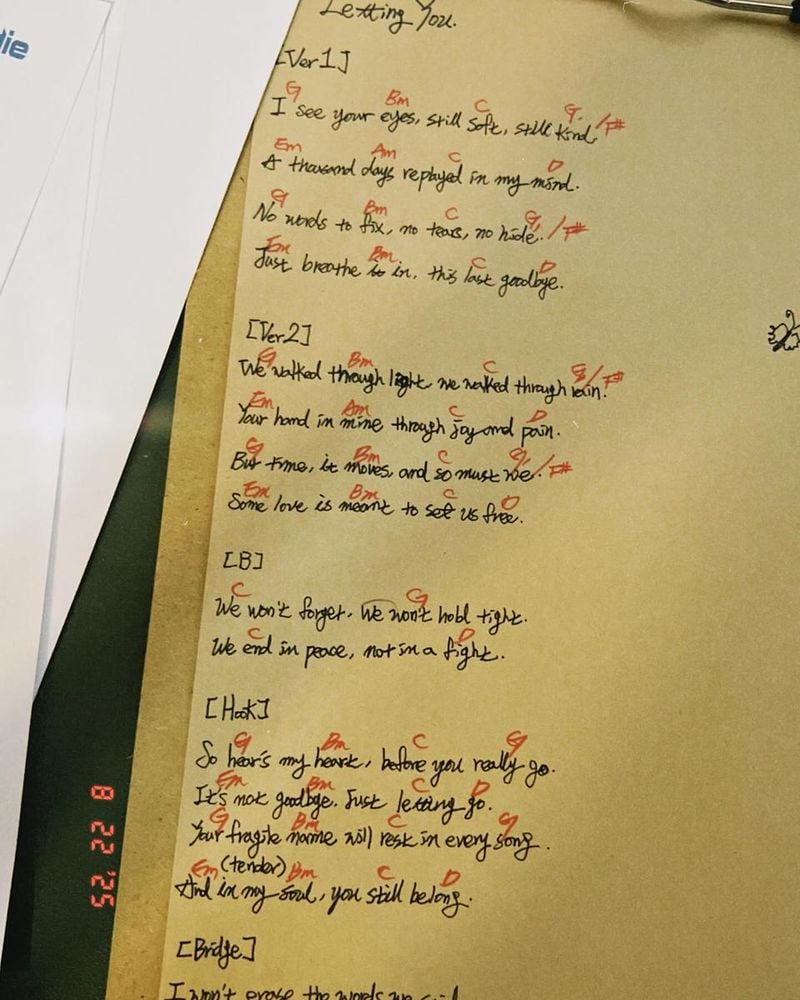 die
Letting You.
[Ver1]
G Bm C G /F#
I see your eyes, still soft, still kind.
Em Am C D
A thousand days replayed in my mind.
G Bm C G /F#
No words to fix, no tears, no hide.
Em Bm C D
Just breathe in, this last goodbye.
[Ver2]
G Bm C G/F#
We walked through light, we walked through rain.
Em Am C D
Your hand in mine through joy and pain.
G Bm C G/F#
But time, it moves, and so must we.
Em Bm C D
Some love is meant to set us free.
[B]
C G
We won't forget. We won't hold tight.
C D
We end in peace, not in a fight.
[Hook]
G Bm C G
So hear's my heart, before you really go.
Em Bm C D
It's not goodbye. Just letting go.
G Bm C G
Your fragile name will rest in every song.
Em (tender) Bm C D
And in my soul, you still belong.
[Bridge]
I won't erase the words we said
8 22 '25